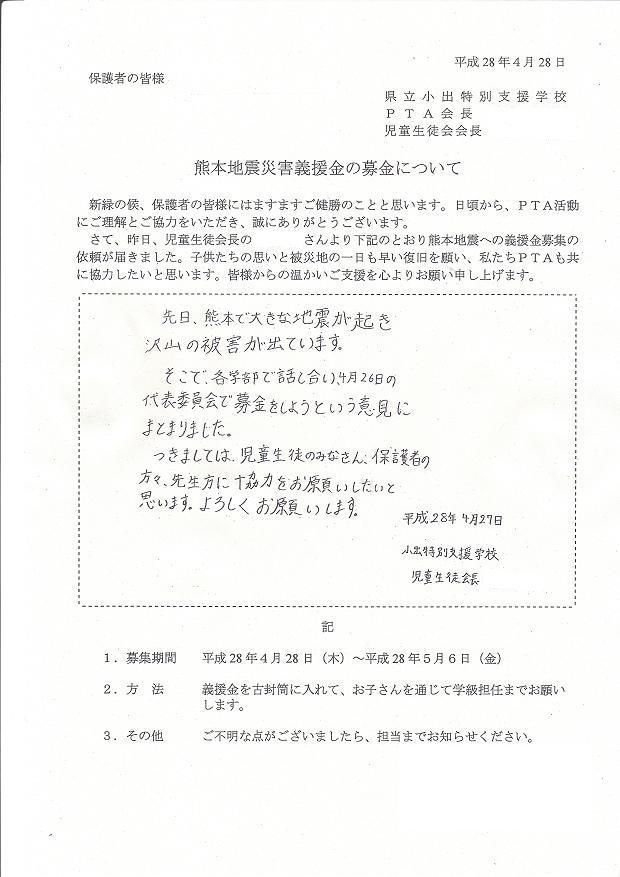 平成28年4月28日
保護者の皆様
県立小出特別支援学校
PTA会長
児童生徒会会長
熊本地震災害義援金の募金について
新緑の侯、保護者の皆様にはますますご健勝のことと思います。日頃から、PTA活動
にご理解とご協力をいただき、誠にありがとうございます。
さて、昨日、児童生徒会長の さんより下記のとおり熊本地震への義援金募集の
依頼が届きました。子供たちの思いと被災地の一日も早い復旧を願い、私たちPTAも共
に協力したいと思います。皆様からの温かいご支援を心よりお願い申し上げます。
先日、熊本で大きな地震が起き
沢山の被害が出ています。
そこで、各学部で話し合い、4月26日の
代表委員会で募金をしようという意見に
まとまりました。
つきましては、児童生徒のみなさん、保護者の
方々、先生方に協力をお願いしたいと
思います。よろしくお願いします。
平成28年4月27日
小出特別支援学校
児童生徒会長
記
1.募集期間 平成28年4月28日(木)~平成28年5月6日(金)
2.方 法 義援金を古封筒に入れて、お子さんを通じて学級担任までお願い
します。
3.その他 ご不明な点がございましたら、担当までお知らせください。